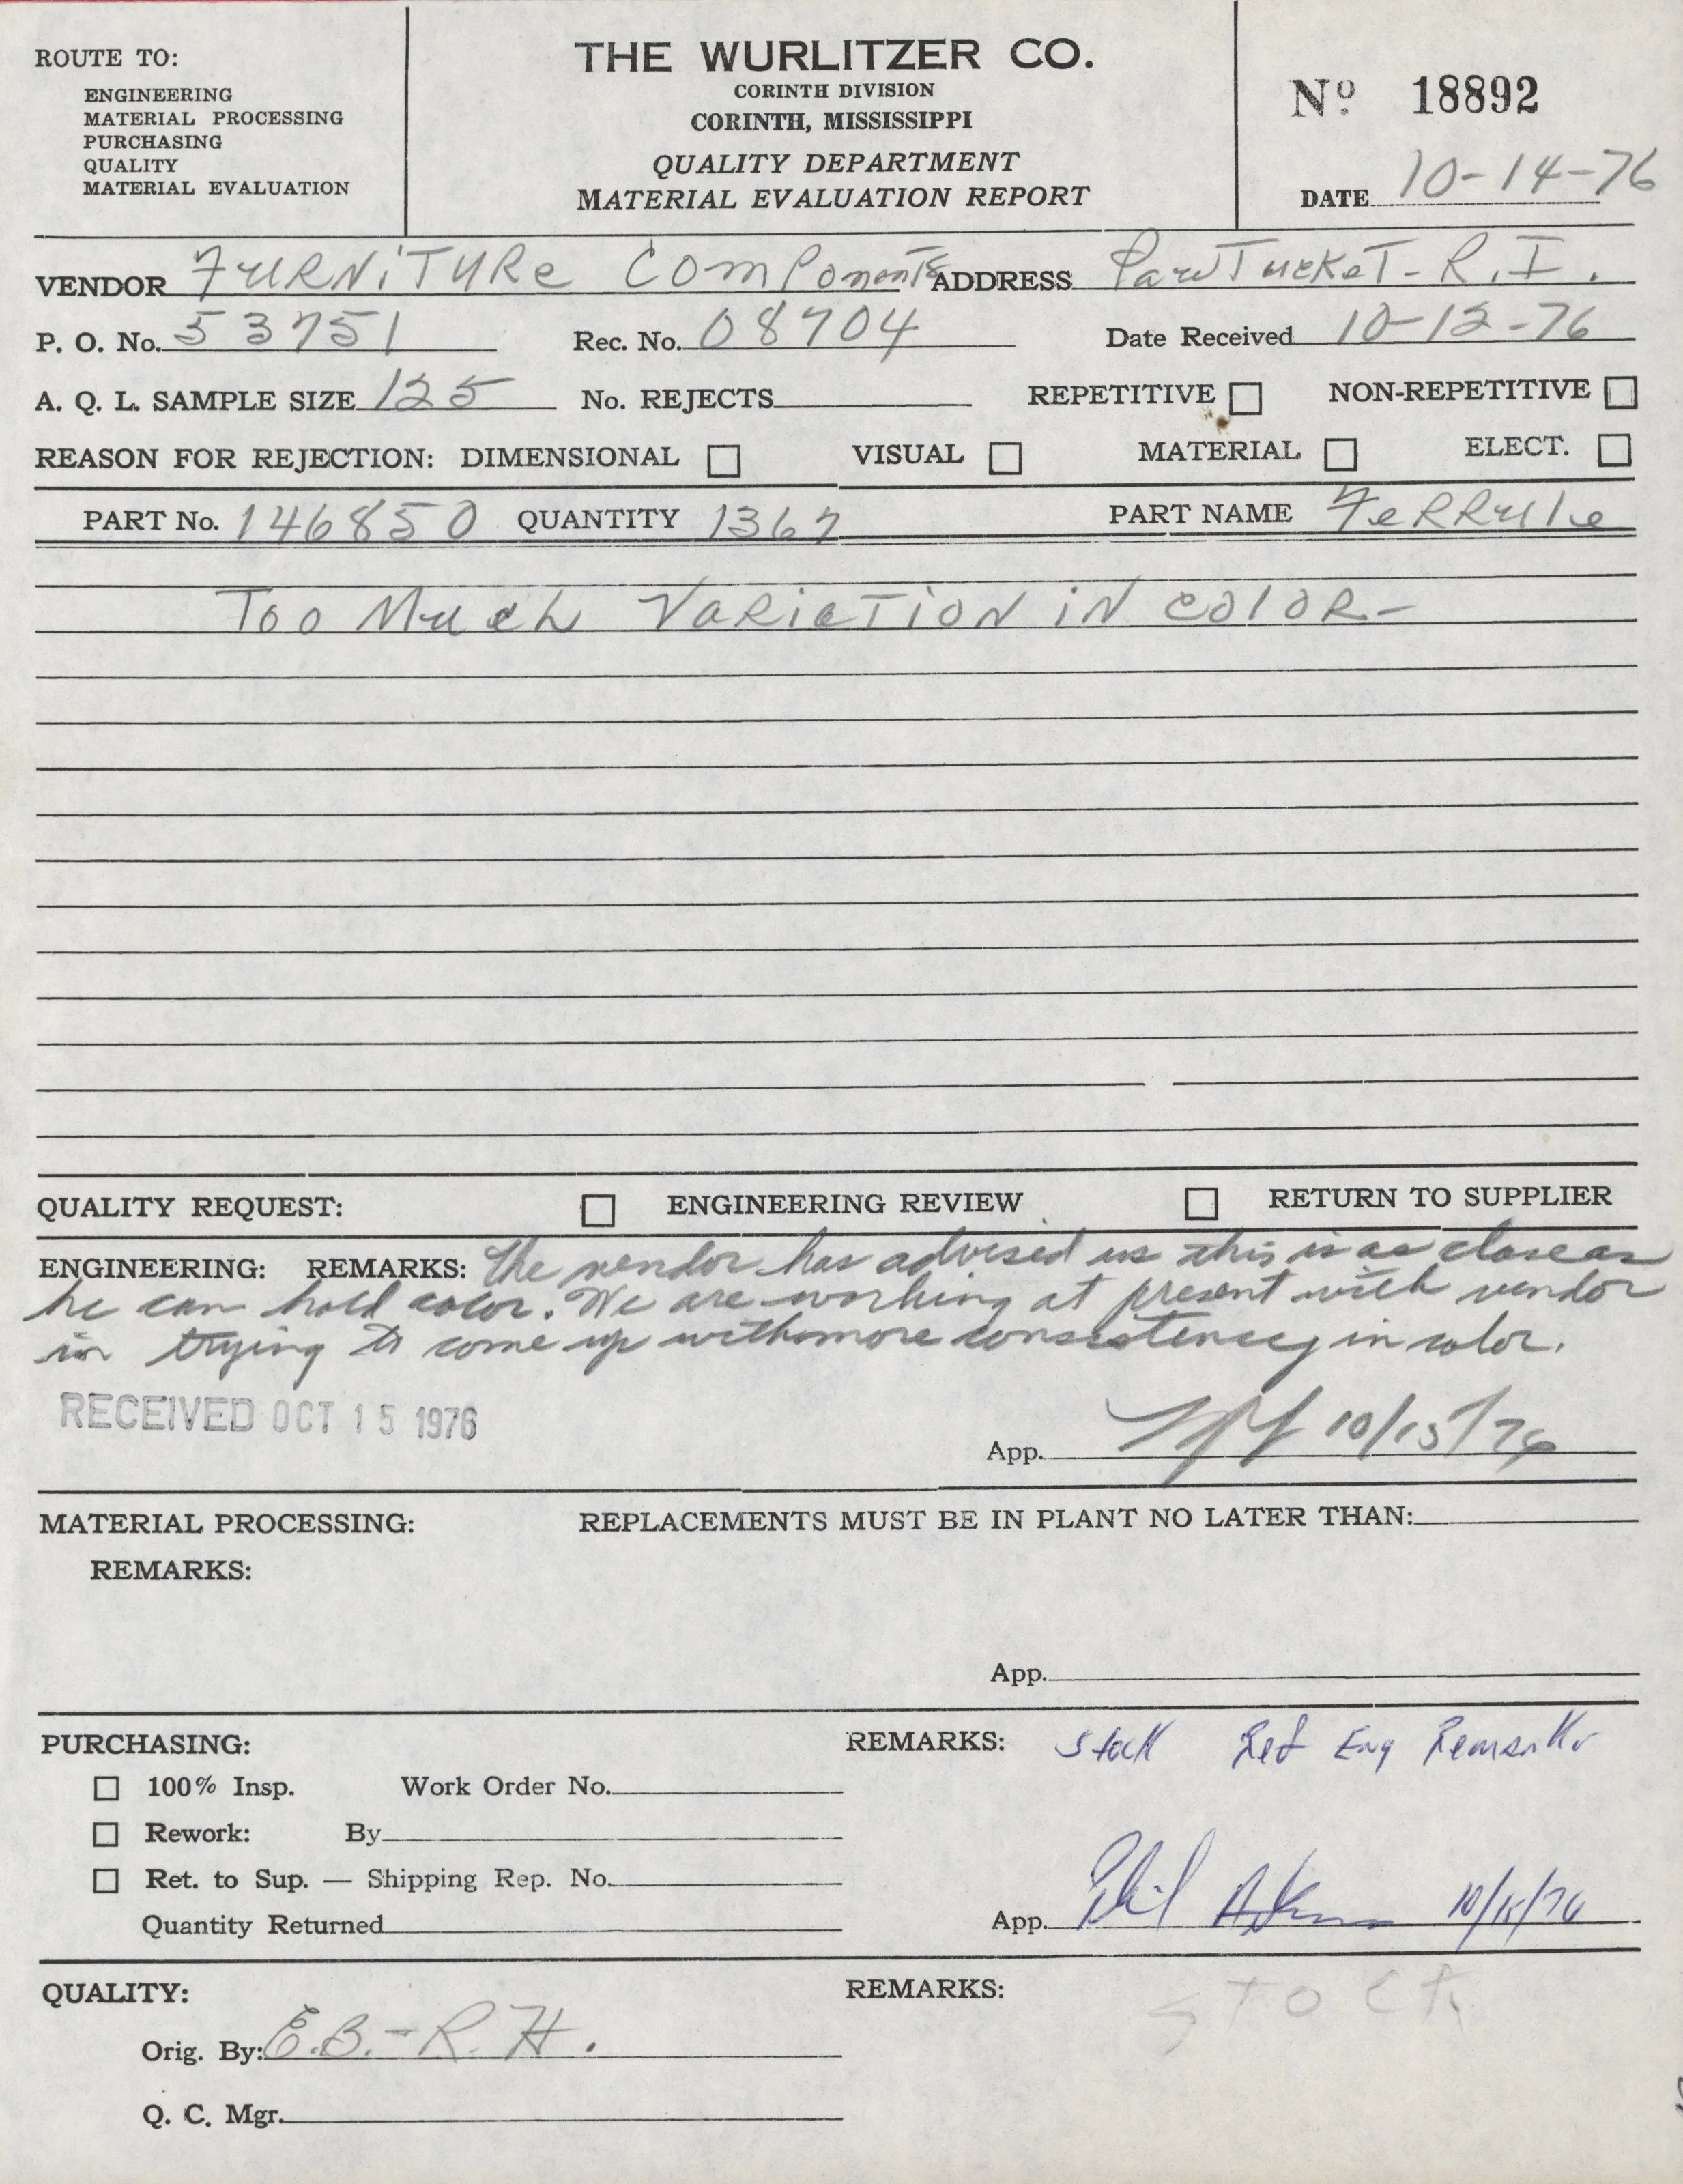 ROUTE TO:
ENGINEERING
MATERIAL PROCESSING
PURCHASING
QUALITY
MATERIAL EVALUATION
THE WURLITZER CO.
CORINTH DIVISION
CORINTH, MISSISSIPPI
QUALITY DEPARTMENT
MATERIAL EVALUATION REPORT
Nº 18892
DATE 10-14-76
VENDOR FURNiTURe ComPonents ADDRESS PawTucKeT-R.I.
P. O. No. 53751 Rec. No. 08704 Date Received 10-12-76
A. Q. L. SAMPLE SIZE 125 No. REJECTS REPETITIVE NON-REPETITIVE
REASON FOR REJECTION: DIMENSIONAL VISUAL MATERIAL ELECT.
PART No. 146850 QUANTITY 1367 PART NAME FeRRule
Too Much VaRiaTiON iN colOR-
QUALITY REQUEST: ENGINEERING REVIEW RETURN TO SUPPLIER
ENGINEERING: REMARKS: The vendor has advised us this is as close as
he can hold color. We are working at present with vendor
in trying to come up with more consistency in color.
RECEIVED OCT 15 1976
App. 10/15/76
MATERIAL PROCESSING: REPLACEMENTS MUST BE IN PLANT NO LATER THAN:
REMARKS:
App.
PURCHASING: REMARKS: Stock Ref Eng Remarks
100% Insp. Work Order No.
Rework: By
Ret. to Sup. — Shipping Rep. No.
Quantity Returned
App. Phil 10/15/76
QUALITY: REMARKS: STOCK
Orig. By: E.B.-R.H.
Q. C. Mgr.